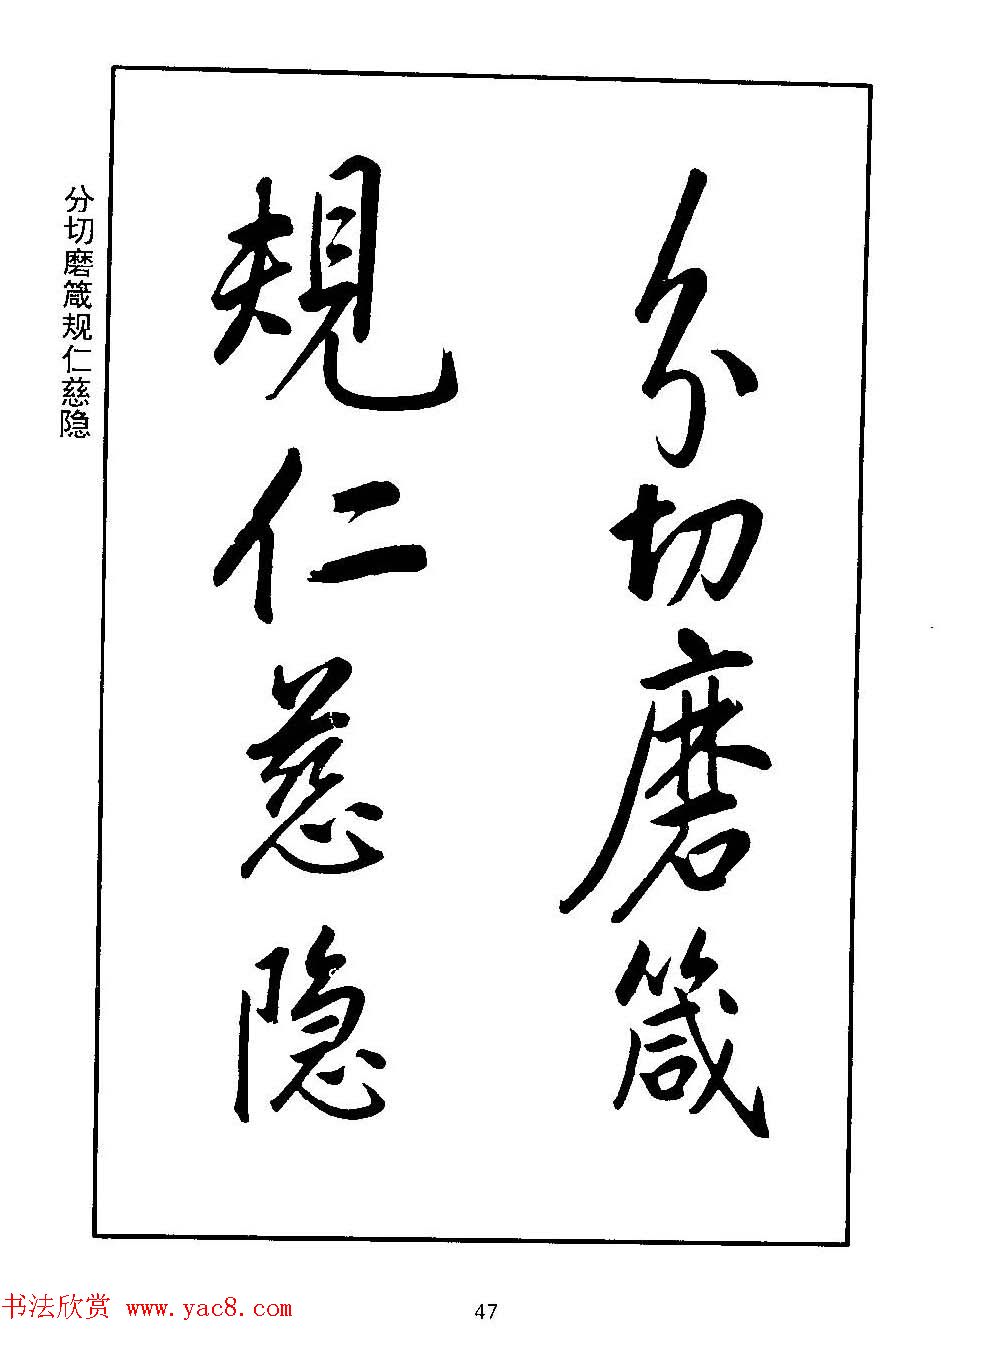 分切磨箴
规仁慈隐
分切磨箴规仁慈隐
书法欣赏 www.yac8.com
47